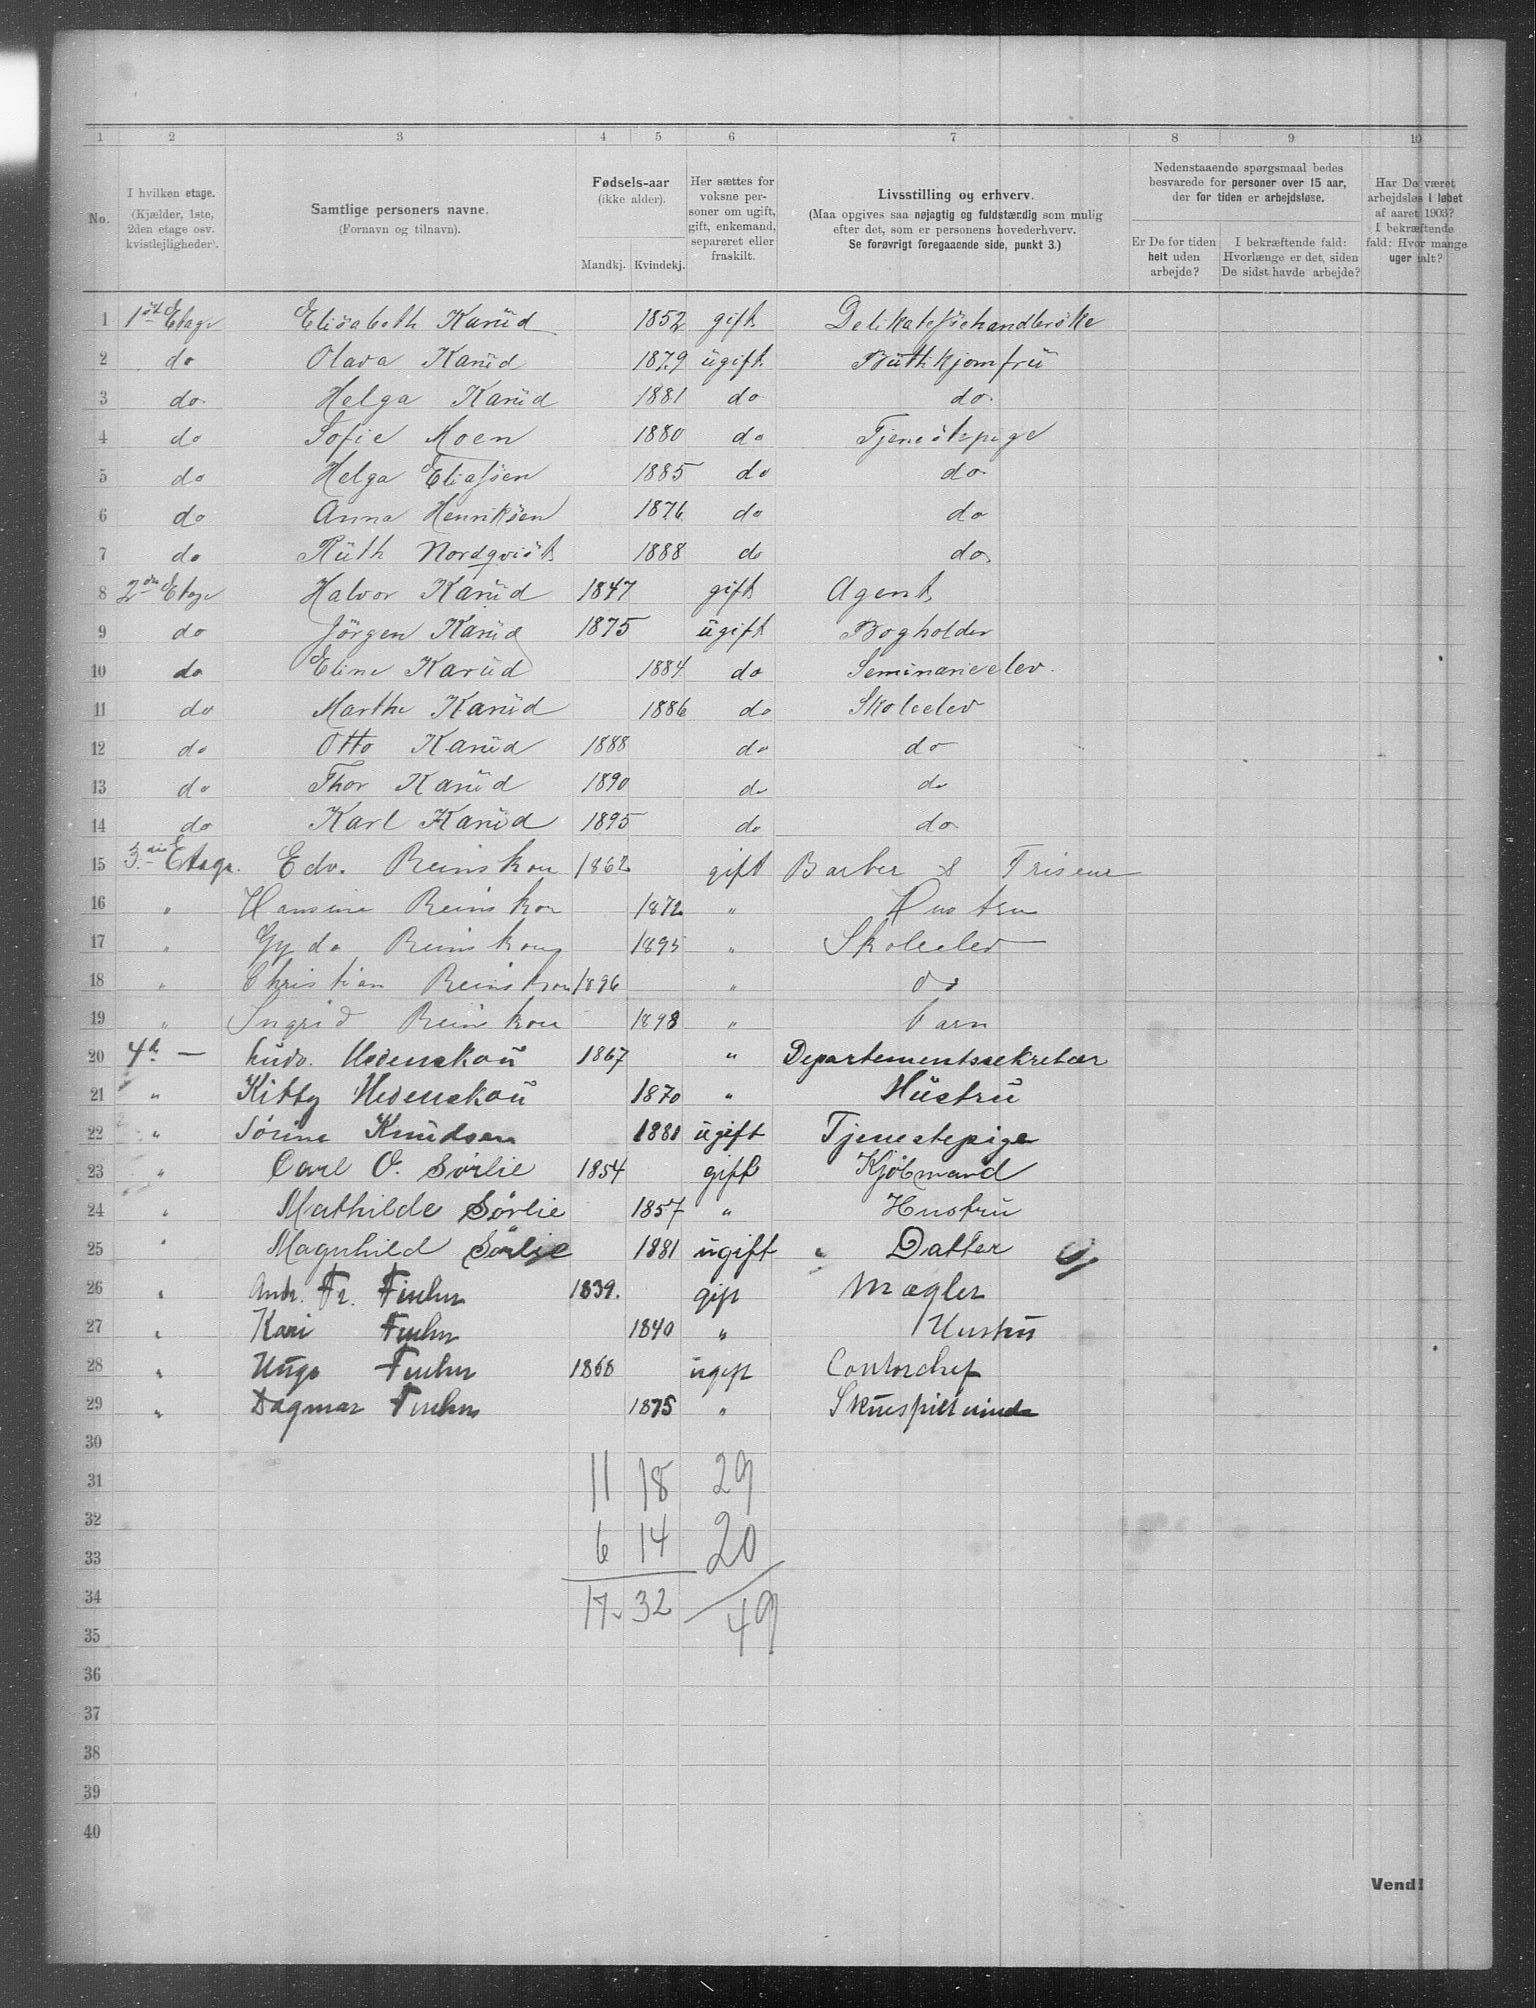 1 2 3 4 5 6 7 8 9 10
No.
I hvilken etage.
(Kjælder, 1ste,
2den etage osv.
kvistlejligheder).
Samtlige personers navne.
(Fornavn og tilnavn).
Fødsels-aar
(ikke alder).
Mandkj. Kvindekj.
Her sættes for
voksne per-
soner om ugift,
gift, enkemand,
separeret eller
fraskilt.
Livsstilling og erhverv.
(Maa opgives saa nøjagtig og fuldstændig som mulig
efter det, som er personens hovederhverv.
Se forøvrigt foregaaende side, punkt 3.)
Nedenstaaende spørgsmaal bedes
besvarede for personer over 15 aar,
der for tiden er arbejdsløse.
Er De for tiden
helt uden
arbejde?
I bekræftende fald:
Hvorlænge er det, siden
De sidst havde arbejde?
Har De været
arbejdsløs i løbet
af aaret 1903?
I bekræftende
fald: Hvor mange
uger ialt?
1 1ste Etage Elisabeth Karud 1852 gift Delikatessehandlerske
2 do Olava Karud 1879 ugift Buthkjomfru
3 do Helga Karud 1881 do do
4 do Sofie Moen 1880 do Tjenestepige
5 do Helga Eliassen 1885 do do
6 do Anna Henriksen 1876 do do
7 do Ruth Nordqvist 1888 do do
8 2den Etage Halvor Karud 1847 gift Agent
9 do Jörgen Karud 1875 ugift Bogholder
10 do Eline Karud 1884 do Seminarieelev.
11 do Marthe Karud 1886 do Skoleelev
12 do Otto Karud 1888 do do
13 do Thor Karud 1890 do do
14 do Karl Karud 1895 do do
15 3die Etage. Edv. Reinskou 1862 gift Barber & Friseur
16 " Hansine Reinskou 1872 " Hustru
17 " Gyda Reinskou 1895 " Skoleelev
18 " Christian Reinskou 1896 " do
19 " Ingrid Reinskou 1898 " barn
20 4de — Ludv. Hedenskou 1867 " Departementssekretær
21 " Kitty Hedenskou 1870 " Hustru
22 " Sörine Knudsen 1881 ugift Tjenestepige
23 " Carl O. Sörlie 1854 gift Kjöbmand
24 " Mathilde Sörlie 1857 " Hustru
25 " Magnhild Sörlie 1881 ugift " Datter
26 " Andr. Fr. Finhn 1839. gift Mægler
27 " Kari 1840 " Hustru
28 " Hugo 1868 ugift Contorchef
29 " Dagmar 1875 " Skuespillerinde
30
31 11 18 29
32
33 6 14 20
34 17 32 49
35
36
37
38
39
40
Vend!